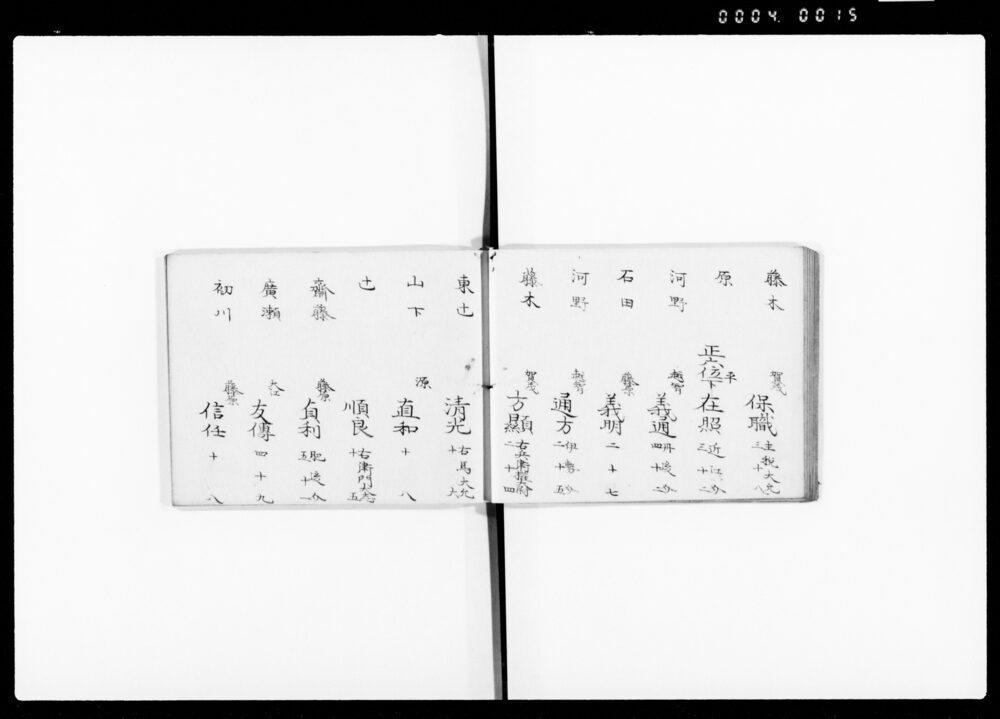 0004.0015
藤木 賀茂 保職 主税大允 三十八
原 正六位下 平 在照 近江介 三十二
河野 越智 義通 丹後介 四十二
石田 藤 義明 二十七
河野 越智 通方 伊勢介 二十五
藤木 賀茂 方顯 右兵衛 二十四
東辻 清光 右馬大允 十六
山下 源 直和 十八
辻 順良 右衛門大志 十五
齋藤 藤原 貞利 肥後介 五十一
廣瀬 友傳 四十九
初川 藤原 信任 十八